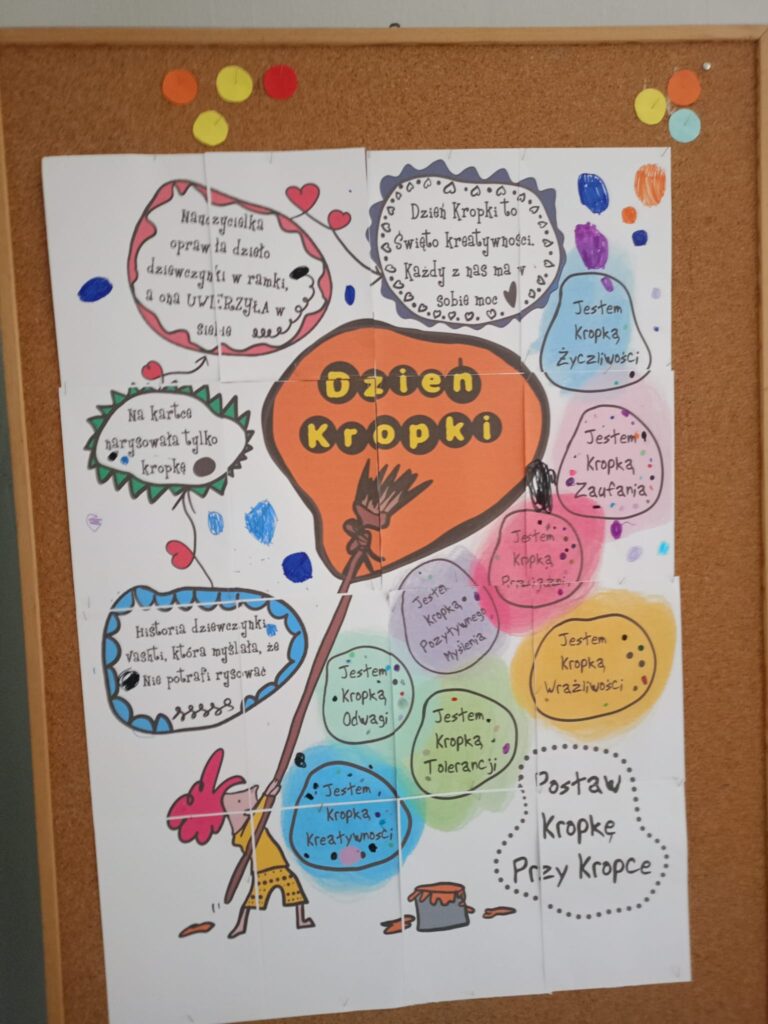 Nauczycielka
oprawiła dzieło
dziewczynki w ramki,
a ona UWIERZYŁA w
siebie
Dzień Kropki to
Święto kreatywności.
Każdy z nas ma w
sobie moc
Jestem
Kropką
Życzliwości
Dzień
Kropki
Na kartce
narysowała tylko
kropkę
Jestem
Kropką
Zaufania
Jestem
Kropką
Przyjaźni
Jestem
Kropką
Pozytywnego
Myślenia
Historia dziewczynki
Vashti, która myślała, że
Nie potrafi rysować
Jestem
Kropką
Wrażliwości
Jestem
Kropką
Odwagi
Jestem
Kropką
Tolerancji
Jestem
Kropką
Kreatywności
Postaw
Kropkę
Przy Kropce